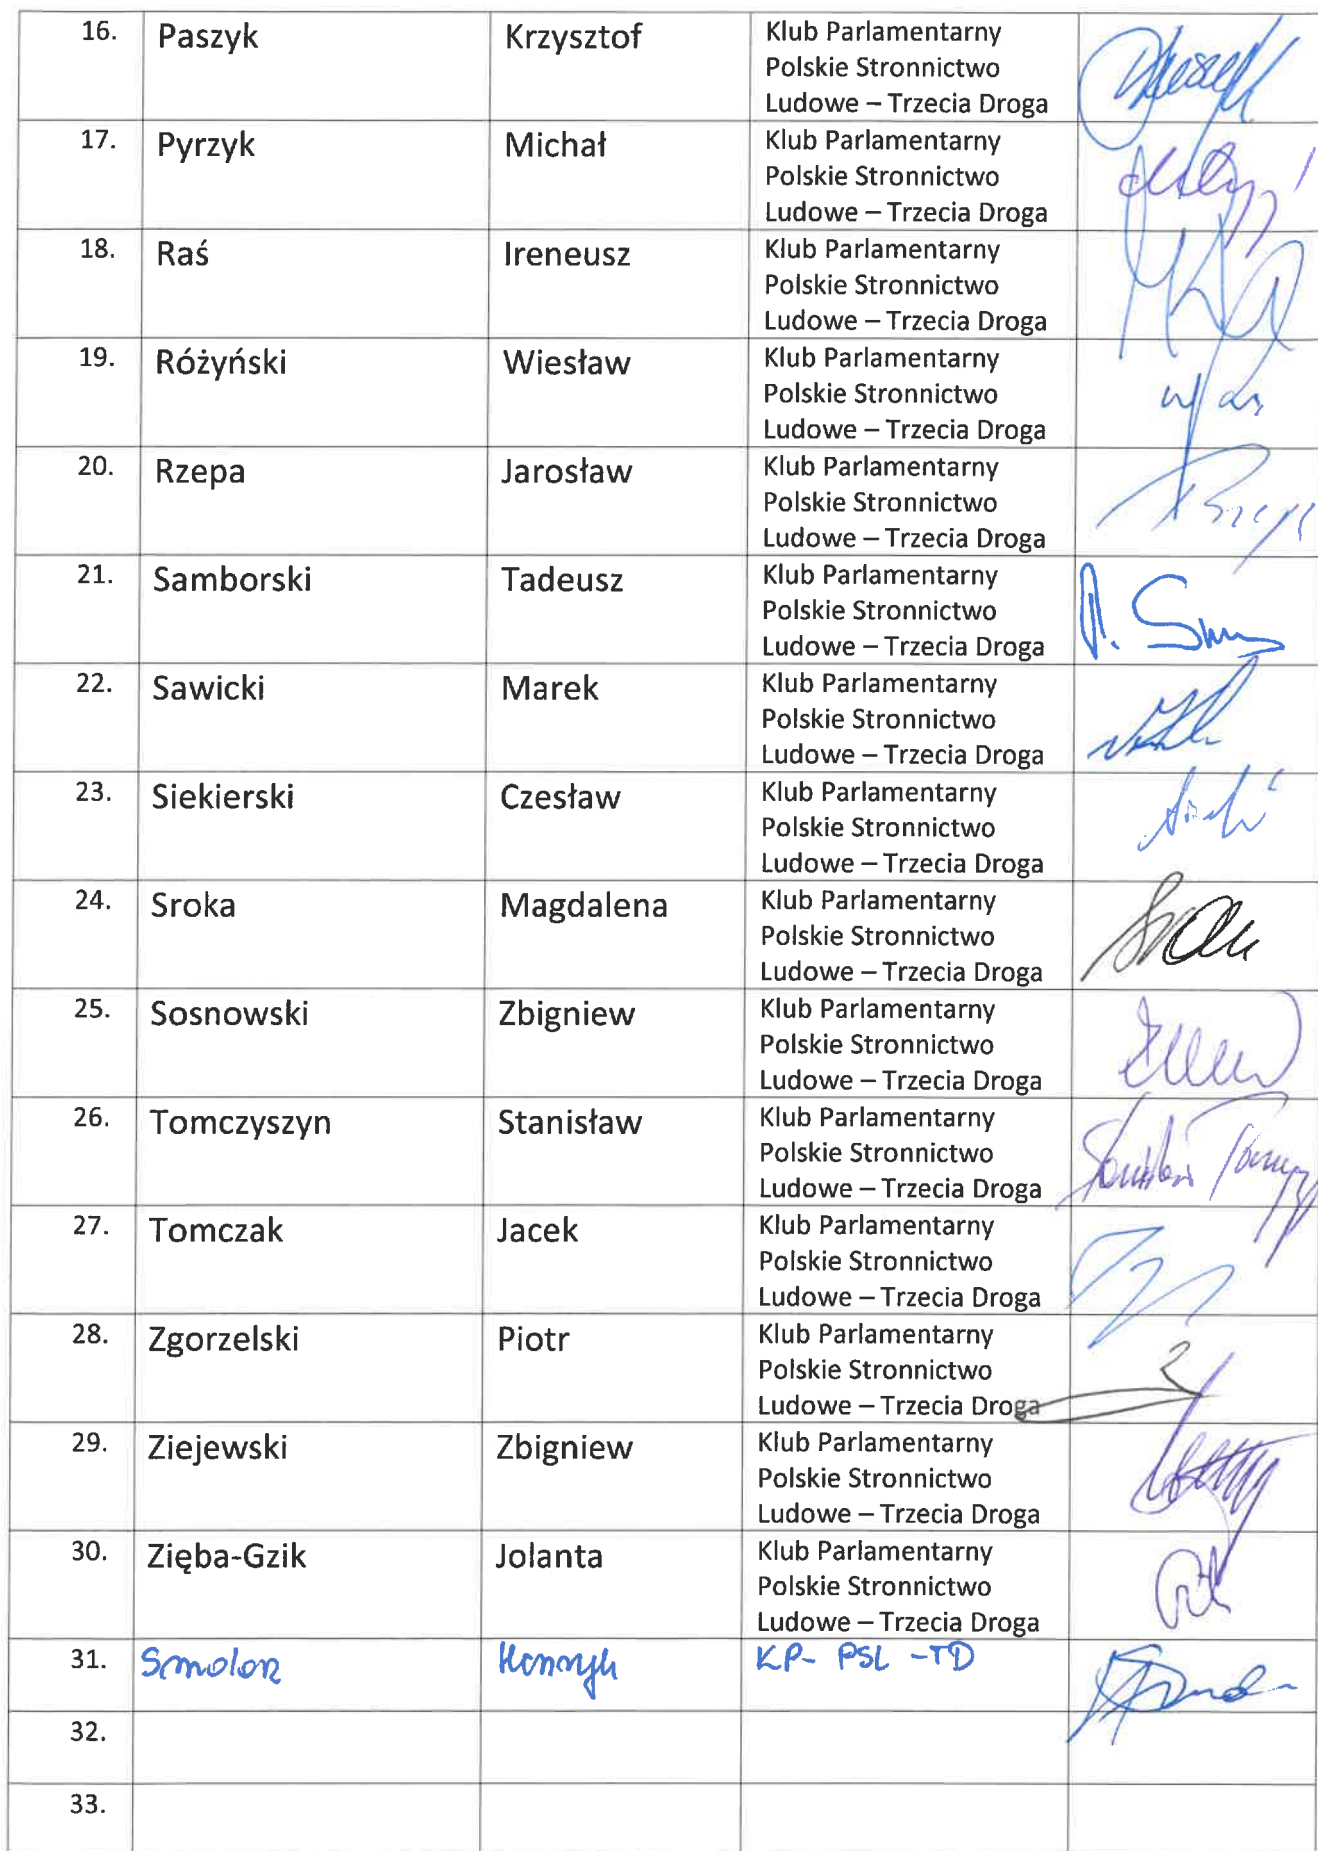 16. Paszyk Krzysztof Klub Parlamentarny
Polskie Stronnictwo
Ludowe – Trzecia Droga
17. Pyrzyk Michał Klub Parlamentarny
Polskie Stronnictwo
Ludowe – Trzecia Droga
18. Raś Ireneusz Klub Parlamentarny
Polskie Stronnictwo
Ludowe – Trzecia Droga
19. Różyński Wiesław Klub Parlamentarny
Polskie Stronnictwo
Ludowe – Trzecia Droga
20. Rzepa Jarosław Klub Parlamentarny
Polskie Stronnictwo
Ludowe – Trzecia Droga
21. Samborski Tadeusz Klub Parlamentarny
Polskie Stronnictwo
Ludowe – Trzecia Droga
22. Sawicki Marek Klub Parlamentarny
Polskie Stronnictwo
Ludowe – Trzecia Droga
23. Siekierski Czesław Klub Parlamentarny
Polskie Stronnictwo
Ludowe – Trzecia Droga
24. Sroka Magdalena Klub Parlamentarny
Polskie Stronnictwo
Ludowe – Trzecia Droga
25. Sosnowski Zbigniew Klub Parlamentarny
Polskie Stronnictwo
Ludowe – Trzecia Droga
26. Tomczyszyn Stanisław Klub Parlamentarny
Polskie Stronnictwo
Ludowe – Trzecia Droga
27. Tomczak Jacek Klub Parlamentarny
Polskie Stronnictwo
Ludowe – Trzecia Droga
28. Zgorzelski Piotr Klub Parlamentarny
Polskie Stronnictwo
Ludowe – Trzecia Droga
29. Ziejewski Zbigniew Klub Parlamentarny
Polskie Stronnictwo
Ludowe – Trzecia Droga
30. Zięba-Gzik Jolanta Klub Parlamentarny
Polskie Stronnictwo
Ludowe – Trzecia Droga
31. Smolarz Henryk KP- PSL -TD
32.
33.